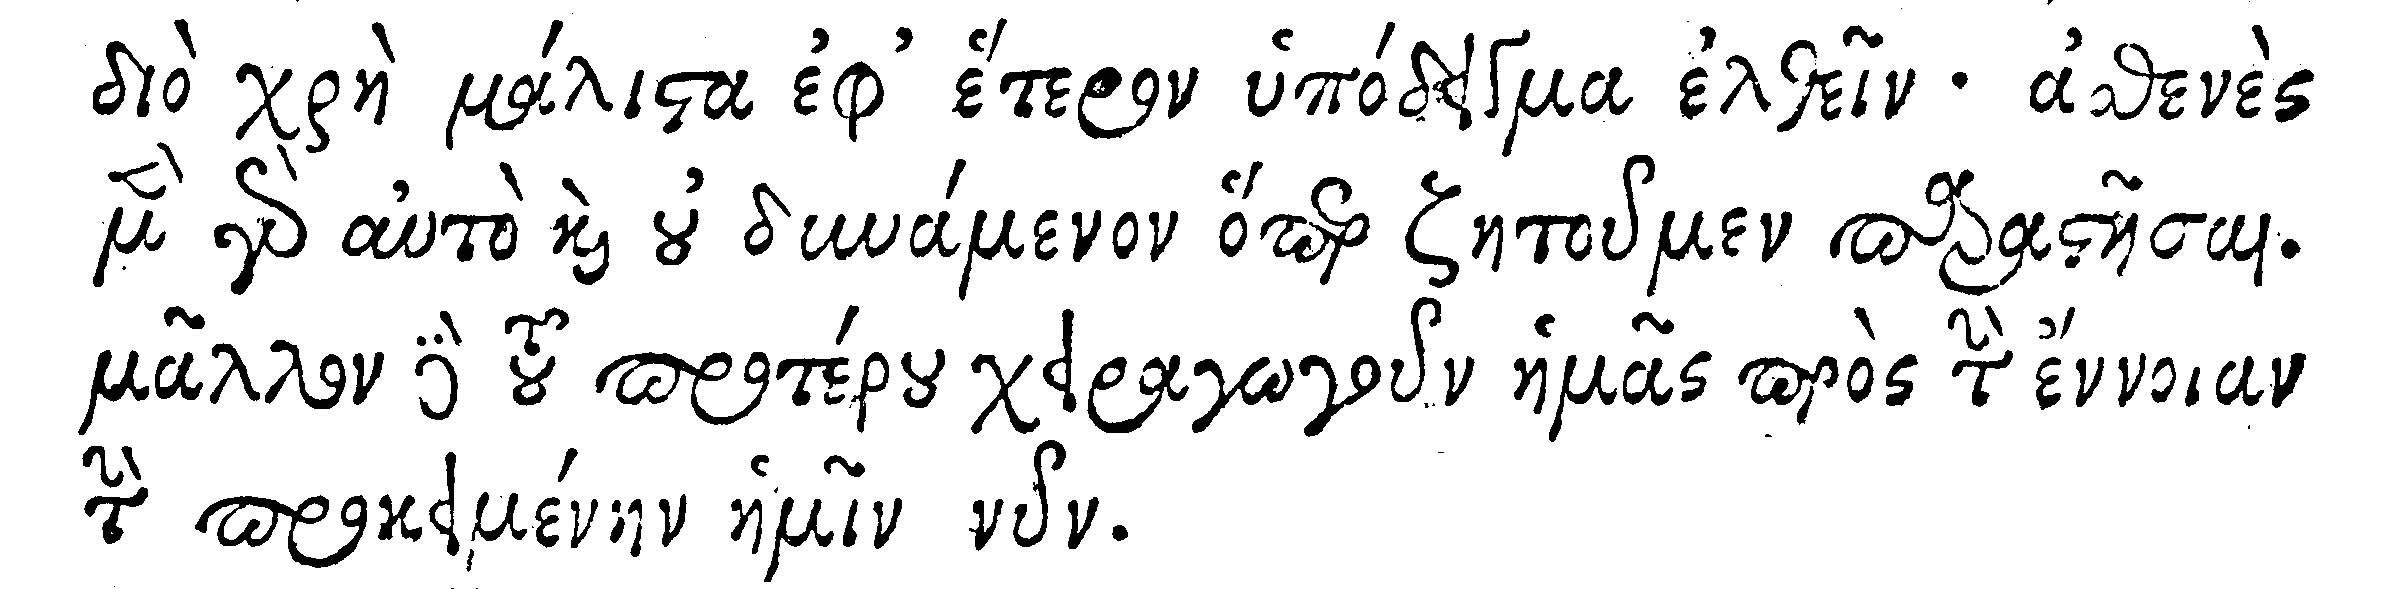 διὸ χρὴ μάλιστα ἐφ’ ἕτερον ὑπόδειγμα ἐλθεῖν· ἀσθενὲς
μὲν γὰρ αὐτὸ καὶ οὐ δυνάμενον ὅπερ ζητοῦμεν παραστῆσαι.
μᾶλλον δὲ τοῦ προτέρου χειραγωγοῦν ἡμᾶς πρὸς τὴν ἔννοιαν
τὴν προκειμένην ἡμῖν νῦν.